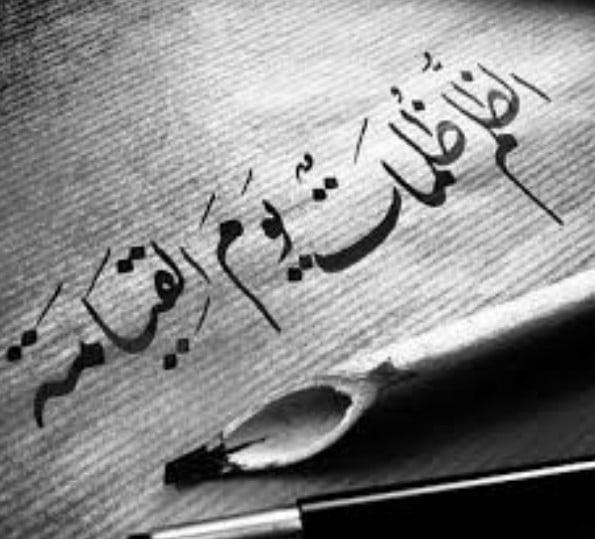 الظُّلم ظُلُمات يَومَ القِيَامَة